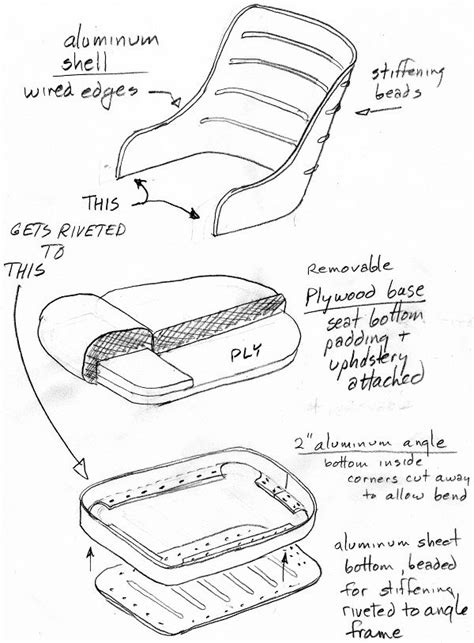 aluminum
shell
wired edges
stiffening
beads
THIS
GETS RIVETED
TO
THIS
Removable
Plywood base
seat bottom
padding +
upholstery
attached
PLY
2" aluminum angle
bottom inside
corners cut away
to allow bend
aluminum sheet
bottom, beaded
for stiffening,
riveted to angle
frame